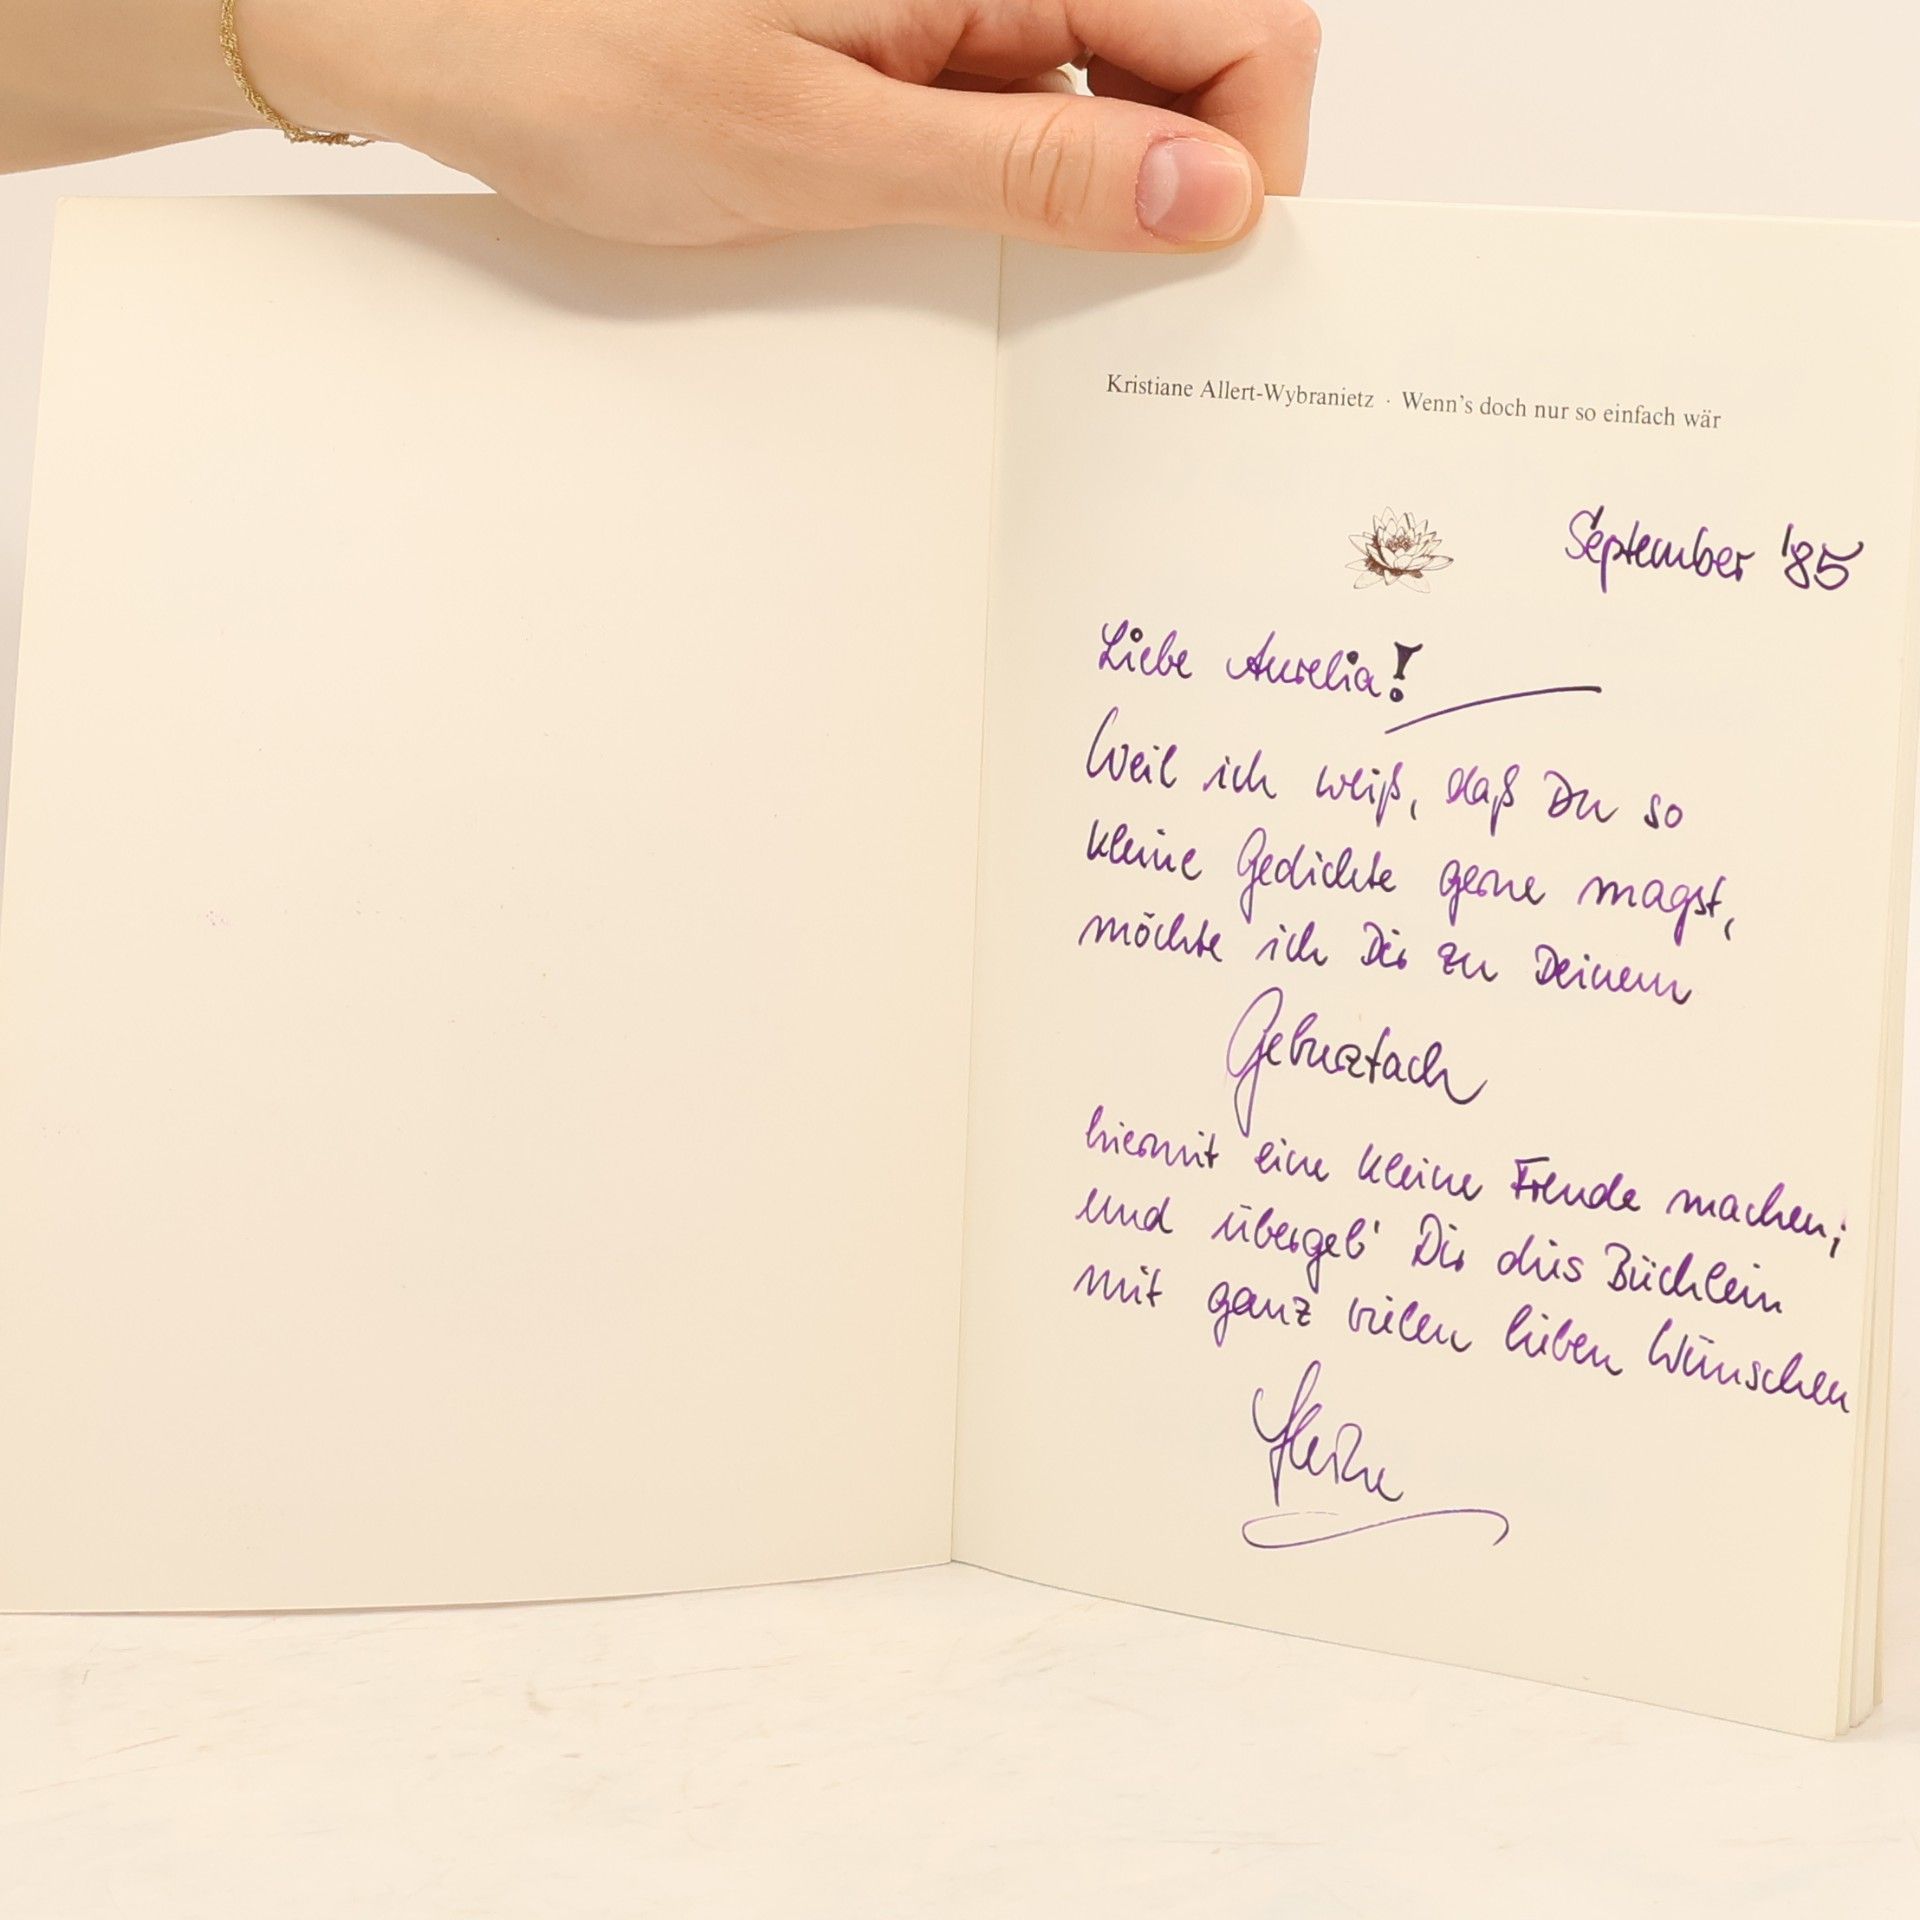 Kristiane Allert-Wybranietz · Wenn's doch nur so einfach wär
September '85
Liebe Aurelia!
Weil ich weiß, daß Du so
kleine Gedichte gerne magst,
möchte ich Dir zu Deinem
Geburztach
hiermit eine kleine Freude machen;
und übergeb' Dir dies Büchlein
mit ganz vielen lieben Wünschen
Heike